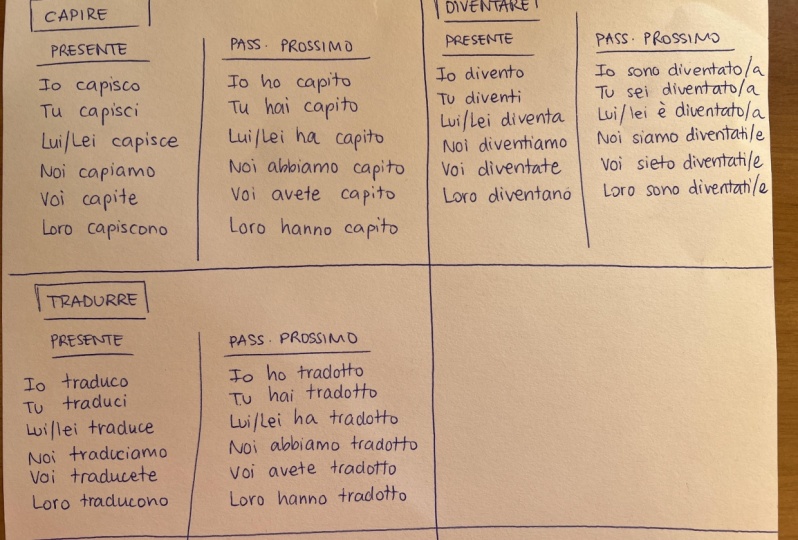 CAPIRE
PRESENTE
Io capisco
Tu capisci
Lui/Lei capisce
Noi capiamo
Voi capite
Loro capiscono
PASS. PROSSIMO
Io ho capito
Tu hai capito
Lui/Lei ha capito
Noi abbiamo capito
Voi avete capito
Loro hanno capito
DIVENTARE
PRESENTE
Io divento
Tu diventi
Lui/lei diventa
Noi diventiamo
Voi diventate
Loro diventano
PASS. PROSSIMO
Io sono diventato/a
Tu sei diventato/a
Lui/lei è diventato/a
Noi siamo diventati/e
Voi sieto diventati/e
Loro sono diventati/e
TRADURRE
PRESENTE
Io traduco
Tu traduci
Lui/lei traduce
Noi traduciamo
Voi traducete
Loro traducono
PASS. PROSSIMO
Io ho tradotto
Tu hai tradotto
Lui/Lei ha tradotto
Noi abbiamo tradotto
Voi avete tradotto
Loro hanno tradotto